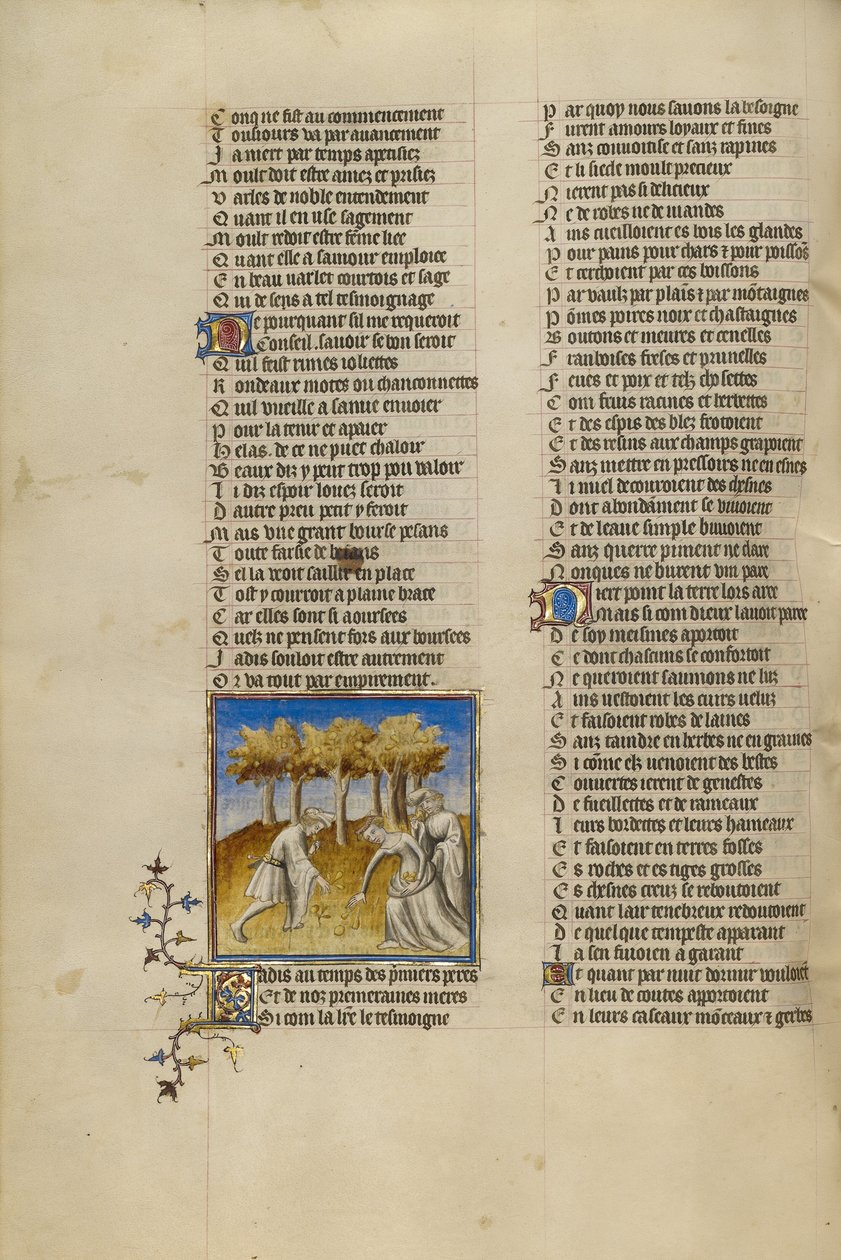 Conq ne fist au commencement
Tousiours va par auancement
Ja niert par temps apetisiez
Moult doit estre amez et prisiez
Varles de noble entendement
Quant il en use sagement
Moult redoit estre feme liee
Quant elle a samour emploiee
En beau uarlet courtois et sage
Qui de sens a tel tesmoignage
Ne pourquant sil me requeroit
Conseil. sauoir se bon seroit
Quil feist rimes ioliettes
Rondeaux motes ou chanconnettes
Quil vueille a samie enuoier
Pour la tenir et apaier
Helas. de ce ne puet chaloir
Beaux diz y peut trop pou valoir
Li diz espoir louez seroit
Dautre preu petit y feroit
Mais vne grant bourse pesans
Toute farsie de besans
Sel la veoit saillir en place
Tost y courroit a plaine brace
Car elles sont si aoursees
Quelz ne pensent fors aux boursees
Jadis souloit estre autrement
Or va tout par empirement.
Jadis au temps des pmiers peres
Et de noz premeraines meres
Si com la lre le tesmoigne
Par quoy nous sauons la besoigne
Furent amours loyaux et fines
Sanz conuoitise et sanz rapines
Et li siecle moult precieux
Nierent pas si delicieux
Ne de robes ne de uiandes
Ains cueilloient es bois les glandes
Pour pains pour chars ⁊ pour poissōs
Et cerchoient par ces boissons
Par vaulz par plaīs ⁊ par mōtaignes
Pōmes poires noix et chastaignes
Boutons et meures et cenelles
Franboises freses et prunelles
Feues et poix et telz chosettes
Com fruis racines et herbettes
Et des espis des blez frotoient
Et des resins aux champs grapoient
Sanz mettre en pressoirs ne en esnes
Li miel decouroient des chesnes
Dont abondāment se viuoient
Et de leaue simple buuoient
Sanz querre piment ne clare
Nonques ne burent vin pare
Niert point la terre lors aree
Mais si com dieux lauoit paree
De soy meismes aportoit
Ce dont chascuns se confortoit
Ne queroient saumons ne luz
Ains uestoient les cuirs ueluz
Et faisoient robes de laines
Sanz taindre en herbes ne en graines
Si cōme elz uenoient des bestes
Couuertes ierent de genestes
De fueillettes et de rameaux
Leurs bordettes et leurs hameaux
Et faisoient en terres fosses
Es roches et es tiges grosses
Es chesnes creuz se reboutoient
Quant lair tenebreux redoutoient
De quelque tempeste apparant
La sen fuioien a garant
Et quant par nuit dormir vouloiēt
En lieu de coutes apportoient
En leurs caseaux mōceaux ⁊ gerbes